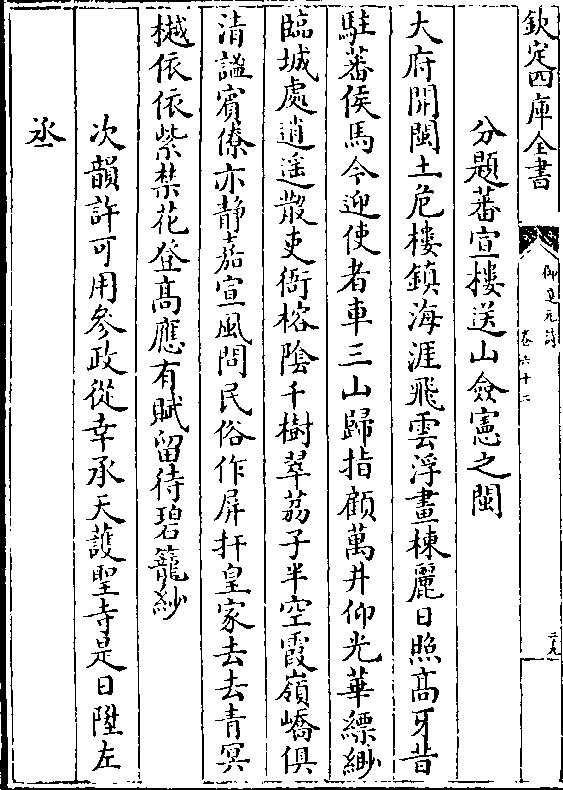 欽定四庫全書
御選元詩
卷六十二
分題蕃宣樓送山僉憲之閩
大府開閩土危樓鎮海涯飛雲浮畫棟麗日照髙牙昔
駐蕃侯馬今迎使者車三山歸指顧萬井仰光華縹緲
臨城處逍遥散吏衙榕陰千樹翠荔子半空霞嶺嶠俱
清謐賓僚亦静嘉宣風問民俗作屏扞皇家去去青冥
樾依依紫禁花登髙應有賦留待碧籠紗
次韻許可用參政從幸承天䕶聖寺是日陞左
丞